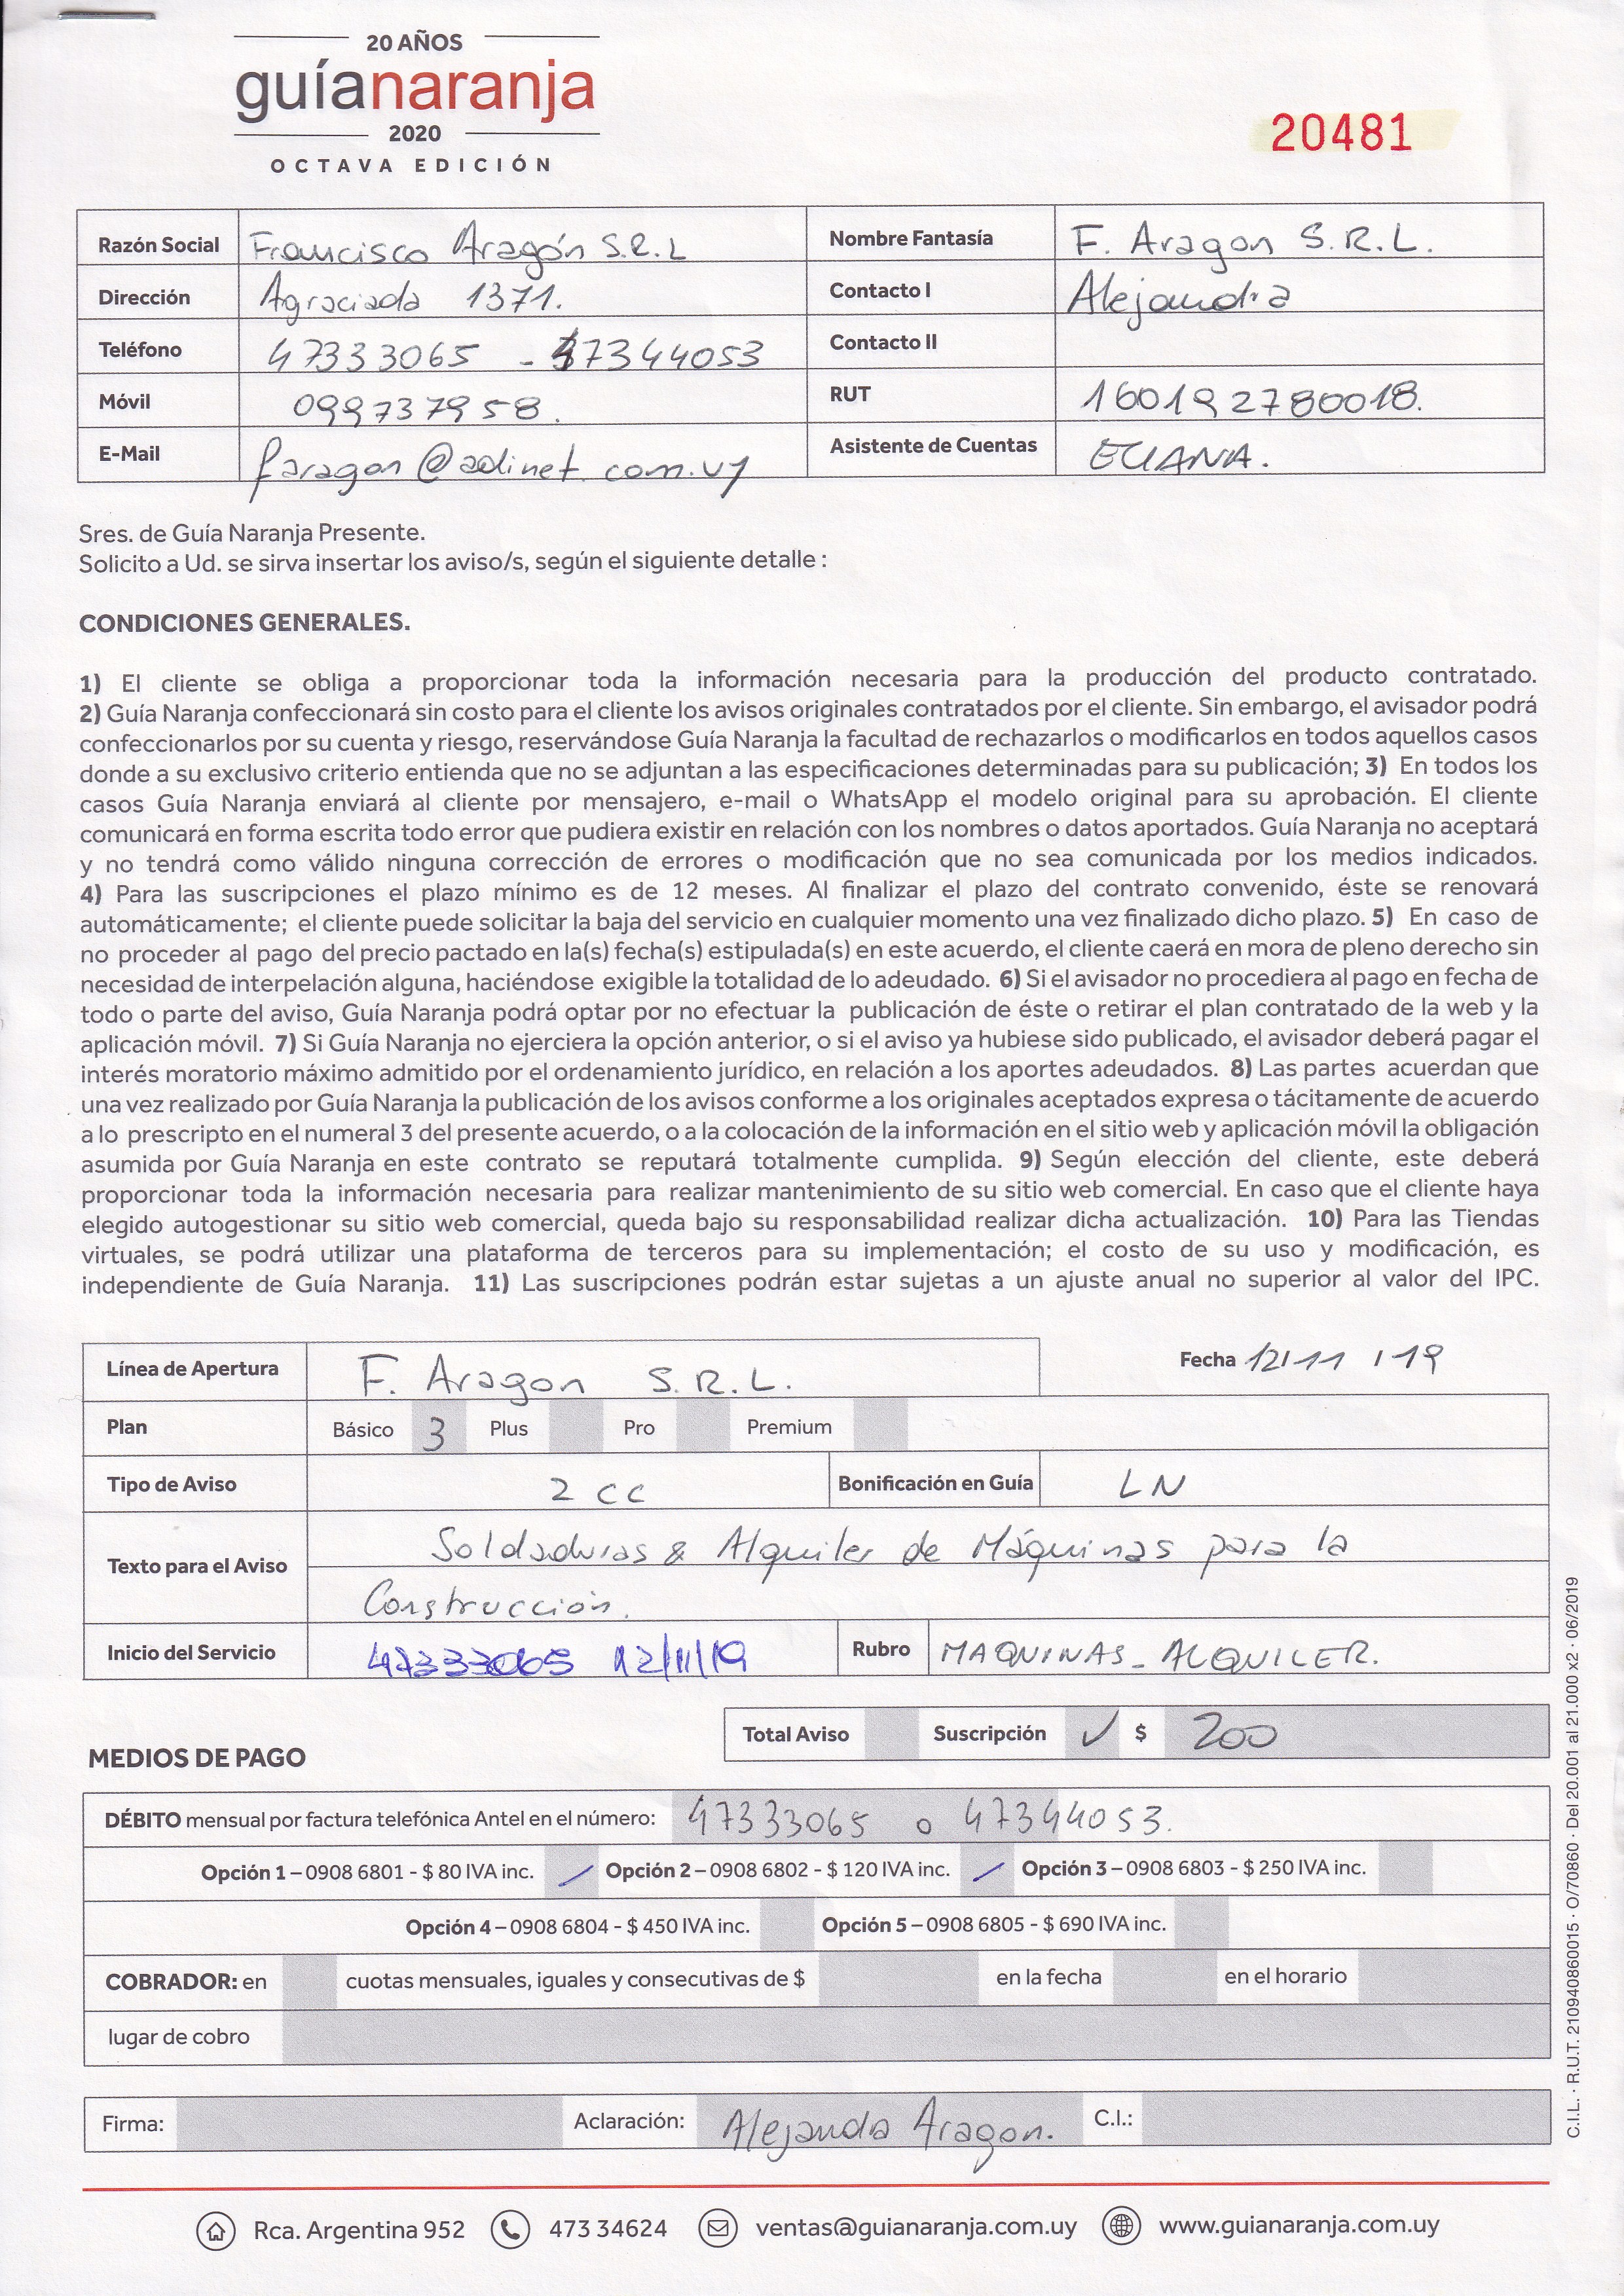 20 AÑOS
guíanaranja
2020
OCTAVA EDICIÓN
20481
Razón Social Francisco Aragón S.R.L Nombre Fantasía F. Aragon S.R.L.
Dirección Agraciada 1371. Contacto I Alejandra
Teléfono 47333065 - 47344053 Contacto II
Móvil 099737958. RUT 160192780018.
E-Mail faragon@adinet.com.uy Asistente de Cuentas ELIANA.
Sres. de Guía Naranja Presente.
Solicito a Ud. se sirva insertar los aviso/s, según el siguiente detalle :
CONDICIONES GENERALES.
1) El cliente se obliga a proporcionar toda la información necesaria para la producción del producto contratado.
2) Guía Naranja confeccionará sin costo para el cliente los avisos originales contratados por el cliente. Sin embargo, el avisador podrá
confeccionarlos por su cuenta y riesgo, reservándose Guía Naranja la facultad de rechazarlos o modificarlos en todos aquellos casos
donde a su exclusivo criterio entienda que no se adjuntan a las especificaciones determinadas para su publicación; 3) En todos los
casos Guía Naranja enviará al cliente por mensajero, e-mail o WhatsApp el modelo original para su aprobación. El cliente
comunicará en forma escrita todo error que pudiera existir en relación con los nombres o datos aportados. Guía Naranja no aceptará
y no tendrá como válido ninguna corrección de errores o modificación que no sea comunicada por los medios indicados.
4) Para las suscripciones el plazo mínimo es de 12 meses. Al finalizar el plazo del contrato convenido, éste se renovará
automáticamente; el cliente puede solicitar la baja del servicio en cualquier momento una vez finalizado dicho plazo. 5) En caso de
no proceder al pago del precio pactado en la(s) fecha(s) estipulada(s) en este acuerdo, el cliente caerá en mora de pleno derecho sin
necesidad de interpelación alguna, haciéndose exigible la totalidad de lo adeudado. 6) Si el avisador no procediera al pago en fecha de
todo o parte del aviso, Guía Naranja podrá optar por no efectuar la publicación de éste o retirar el plan contratado de la web y la
aplicación móvil. 7) Si Guía Naranja no ejerciera la opción anterior, o si el aviso ya hubiese sido publicado, el avisador deberá pagar el
interés moratorio máximo admitido por el ordenamiento jurídico, en relación a los aportes adeudados. 8) Las partes acuerdan que
una vez realizado por Guía Naranja la publicación de los avisos conforme a los originales aceptados expresa o tácitamente de acuerdo
a lo prescripto en el numeral 3 del presente acuerdo, o a la colocación de la información en el sitio web y aplicación móvil la obligación
asumida por Guía Naranja en este contrato se reputará totalmente cumplida. 9) Según elección del cliente, este deberá
proporcionar toda la información necesaria para realizar mantenimiento de su sitio web comercial. En caso que el cliente haya
elegido autogestionar su sitio web comercial, queda bajo su responsabilidad realizar dicha actualización. 10) Para las Tiendas
virtuales, se podrá utilizar una plataforma de terceros para su implementación; el costo de su uso y modificación, es
independiente de Guía Naranja. 11) Las suscripciones podrán estar sujetas a un ajuste anual no superior al valor del IPC.
Línea de Apertura F. Aragon S.R.L. Fecha 12/11/19
Plan Básico 3 Plus Pro Premium
Tipo de Aviso 2 CC Bonificación en Guía LN
Texto para el Aviso Soldaduras & Alquiler de Máquinas para la
Construcción.
Inicio del Servicio 47333065 12/11/19 Rubro MAQUINAS - ALQUILER.
Total Aviso Suscripción ✓ $ 200
MEDIOS DE PAGO
DÉBITO mensual por factura telefónica Antel en el número: 47333065 o 47344053.
Opción 1 – 0908 6801 - $ 80 IVA inc. / Opción 2 – 0908 6802 - $ 120 IVA inc. / Opción 3 – 0908 6803 - $ 250 IVA inc.
Opción 4 – 0908 6804 - $ 450 IVA inc. Opción 5 – 0908 6805 - $ 690 IVA inc.
COBRADOR: en cuotas mensuales, iguales y consecutivas de $ en la fecha en el horario
lugar de cobro
Firma: Aclaración: Alejanda Aragon. C.I.:
Rca. Argentina 952 473 34624 ventas@guianaranja.com.uy www.guianaranja.com.uy
C.I.L. · R.U.T. 210940860015 · O/70860 · Del 20.001 al 21.000 x2 · 06/2019